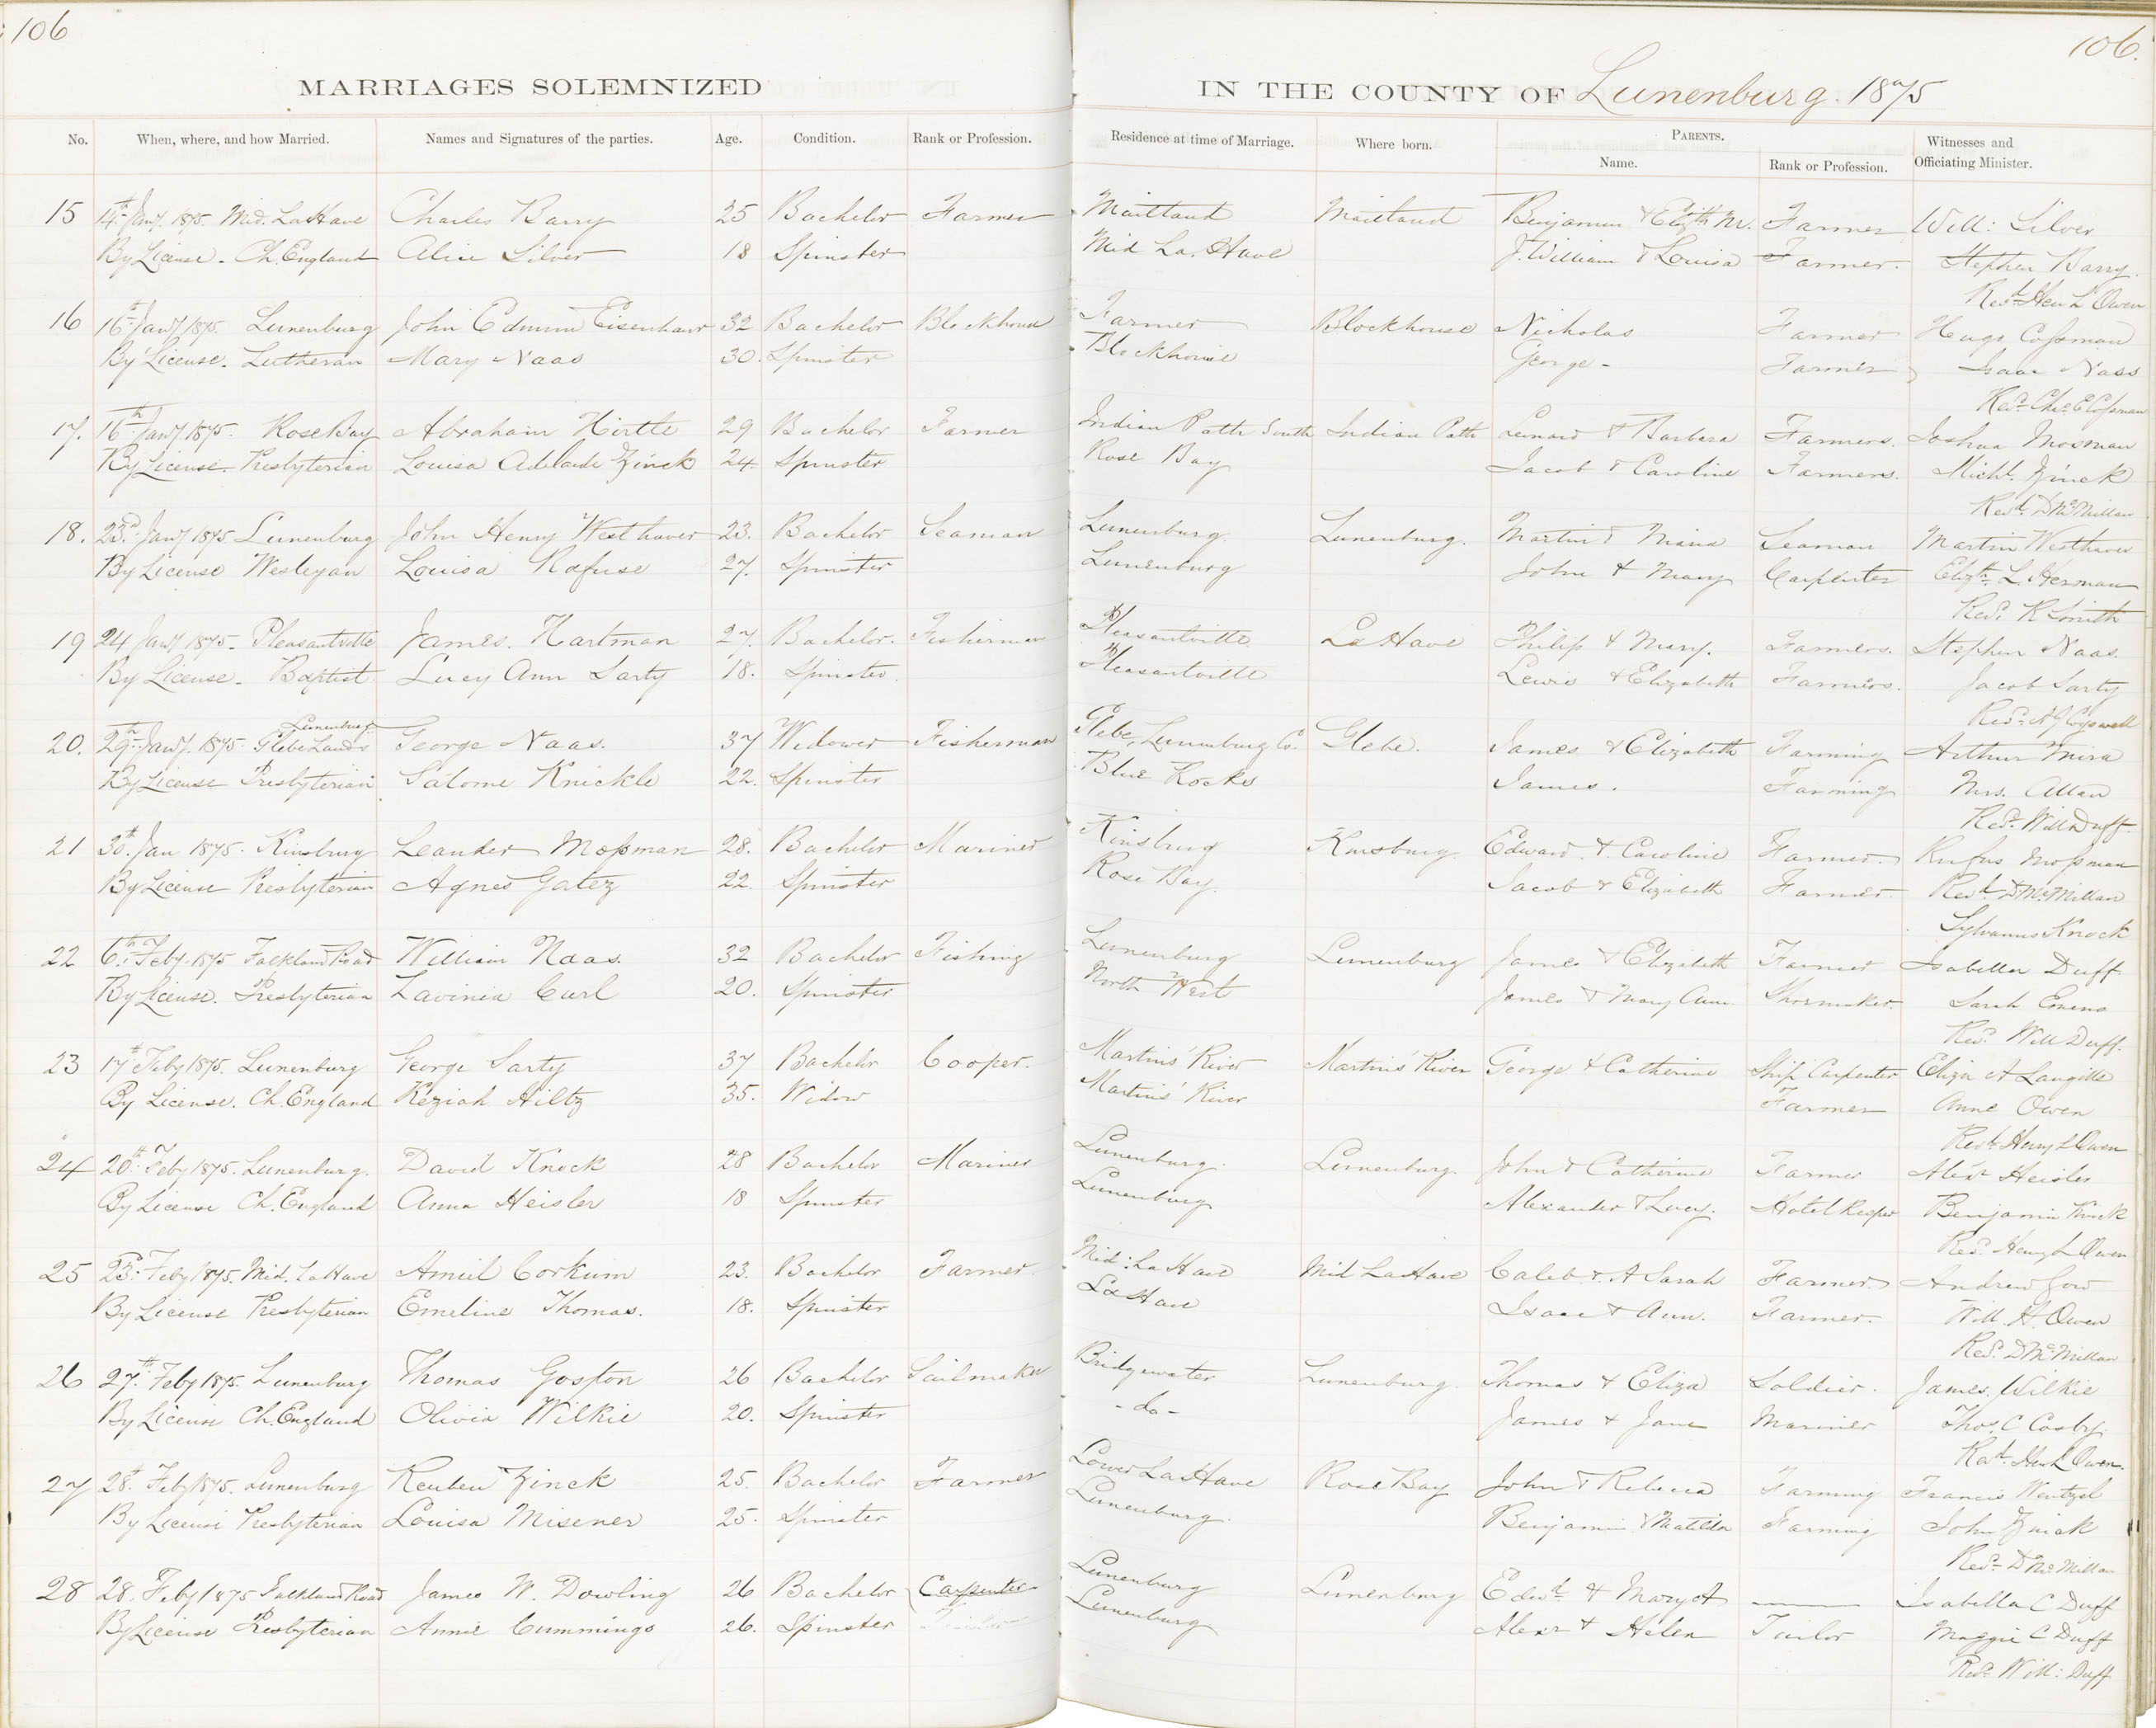 106
106.
MARRIAGES SOLEMNIZED IN THE COUNTY OF Lunenburg. 1875
No. When, where, and how Married. Names and Signatures of the parties. Age. Condition. Rank or Profession. Residence at time of Marriage. Where born. PARENTS. Name. Rank or Profession. Witnesses and Officiating Minister.
15 14th Jany. 1875. Mid. LaHave Charles Barry 25 Bachelor Farmer Maitland Maitland Benjamin & Elizth M. Farmer Will: Silver
By License. Ch. England Alice Silver 18 Spinster Mid La. Have J. William & Louisa Farmer. Stephen Barry.
Revd. Hen L Owen
16 16th Jany 1875. Lunenburg John Edmund Eisenhaur 32 Bachelor Blockhouse Farmer Blockhouse Nicholas Farmer Hugo Coſsman
By License. Lutheran Mary Naas 30. Spinster Blockhouse George - Farmer Isaac Nass
Revd. Chas E Coſsman
17. 16th Jany 1875. Rose Bay Abraham Hirtle 29 Bachelor Farmer Indian Path South Indian Path Lenard & Barbara Farmers. Joshua Mosman
By License. Presbyterian Louisa Adelaide Zinck 24 Spinster Rose Bay Jacob & Caroline Farmers. Michl. Zinck
Revd. D McMillan
18. 23rd Jany 1875 Lunenburg John Henry Westhaver 23. Bachelor Seaman Lunenburg. Lunenburg. Martin & Maria Seaman Martin Westhaver
By License Wesleyan Louisa Rafuse 27. Spinster Lunenburg John & Mary Carpenter Elizth L. Herman
Revd. R Smith
19 24 Jany 1875 - Pleasantville James. Hartman 27. Bachelor. Fisherman Pleasantville LaHave Philip & Mary. Farmers. Stephen Naas.
By License - Baptist Lucy Ann Sarty 18. Spinster. Pleasantville Lewis & Elizabeth Farmers. Jacob Sarty
Revd. A J Cogswell
Lunenburg
20. 29th Jany. 1875. Glebe Lands George Naas. 37 Widower Fisherman Glebe, Lunenburg Co. Glebe. James & Elizabeth Farming Arthur Mira
By License Presbyterian Salome Knickle 22. Spinster Blue Rocks James. Farming Mrs. Allan
Revd. Will Duff.
21 30th. Jan 1875. Kinsburg Leander Moſsman 28. Bachelor Mariner Kinsburg Kinsburg. Edward. & Caroline Farmer. Rufus Moſsman
By License Presbyterian Agnes Gatez 22. Spinster Rose Bay. Jacob & Elizabeth Farmer Revd. D. McMillan
Sylvanus Knock
22 6th. Feby. 1875 Falkland Road William Naas. 32 Bachelor Fishing Lunenburg Lunenburg James & Elizabeth Farmer Isabella Duff.
By License. Presbyterian Lavinia Carl 20. Spinster North West James & Mary Ann. Shoemaker. Sarah
Revd. Will Duff.
23 17th Feby 1875. Lunenburg George Sarty 37 Bachelor Cooper. Martins' River Martins' River George & Catherine Ship Carpenter Eliza A Langille
By License. Ch. England Keziah Hiltz 35. Widow Martins' River Farmer Anne Owen
Revd. Henry L Owen
24 20th Feby 1875. Lunenburg. David Knock 28 Bachelor Mariner Lunenburg. Lunenburg. John & Catherine Farmer Alexr Heisler
By License Ch. England Anna Heisler 18 Spinster Lunenburg Alexander & Lucy. Hotel Keeper Benjamin Knock
Revd. Henry L Owen
25 23rd. Feby 1875. Mid. LaHave Amiel Corkum 23. Bachelor Farmer. Mid: LaHave Mid LaHave Caleb & A Sarah Farmer. Andrew Gow
By License Presbyterian Emeline Thomas. 18. Spinster LaHave Isaac & Ann. Farmer. Will. H. Owen
Revd. D McMillan
26 27th. Feby 1875. Lunenburg Thomas Goſton 26 Bachelor Sailmaker Bridgewater Lunenburg. Thomas & Eliza Soldier. James. Wilkie
By License Ch. England Olivia Wilkie 20. Spinster - do - James & Jane Mariner Thos. C Cosby.
Revd. Hen L Owen.
27 28th. Feby 1875. Lunenburg Reuben Zinck 25. Bachelor Farmer Lower LaHave Rose Bay John & Rebecca Farming Francis Wentzel
By License Presbyterian Louisa Misener 25. Spinster Lunenburg. Benjamin & Matilda Farming John Zinck
Revd. D McMillan
28 28. Feby 1875 Falkland Road James W. Dowling 26 Bachelor Carpenter Lunenburg Lunenburg Edwd. & Mary A Isabella C Duff
By License Presbyterian Annie Cummings 26. Spinster Lunenburg Alexr & Helen Tailor Maggie C Duff
Revd. Will: Duff